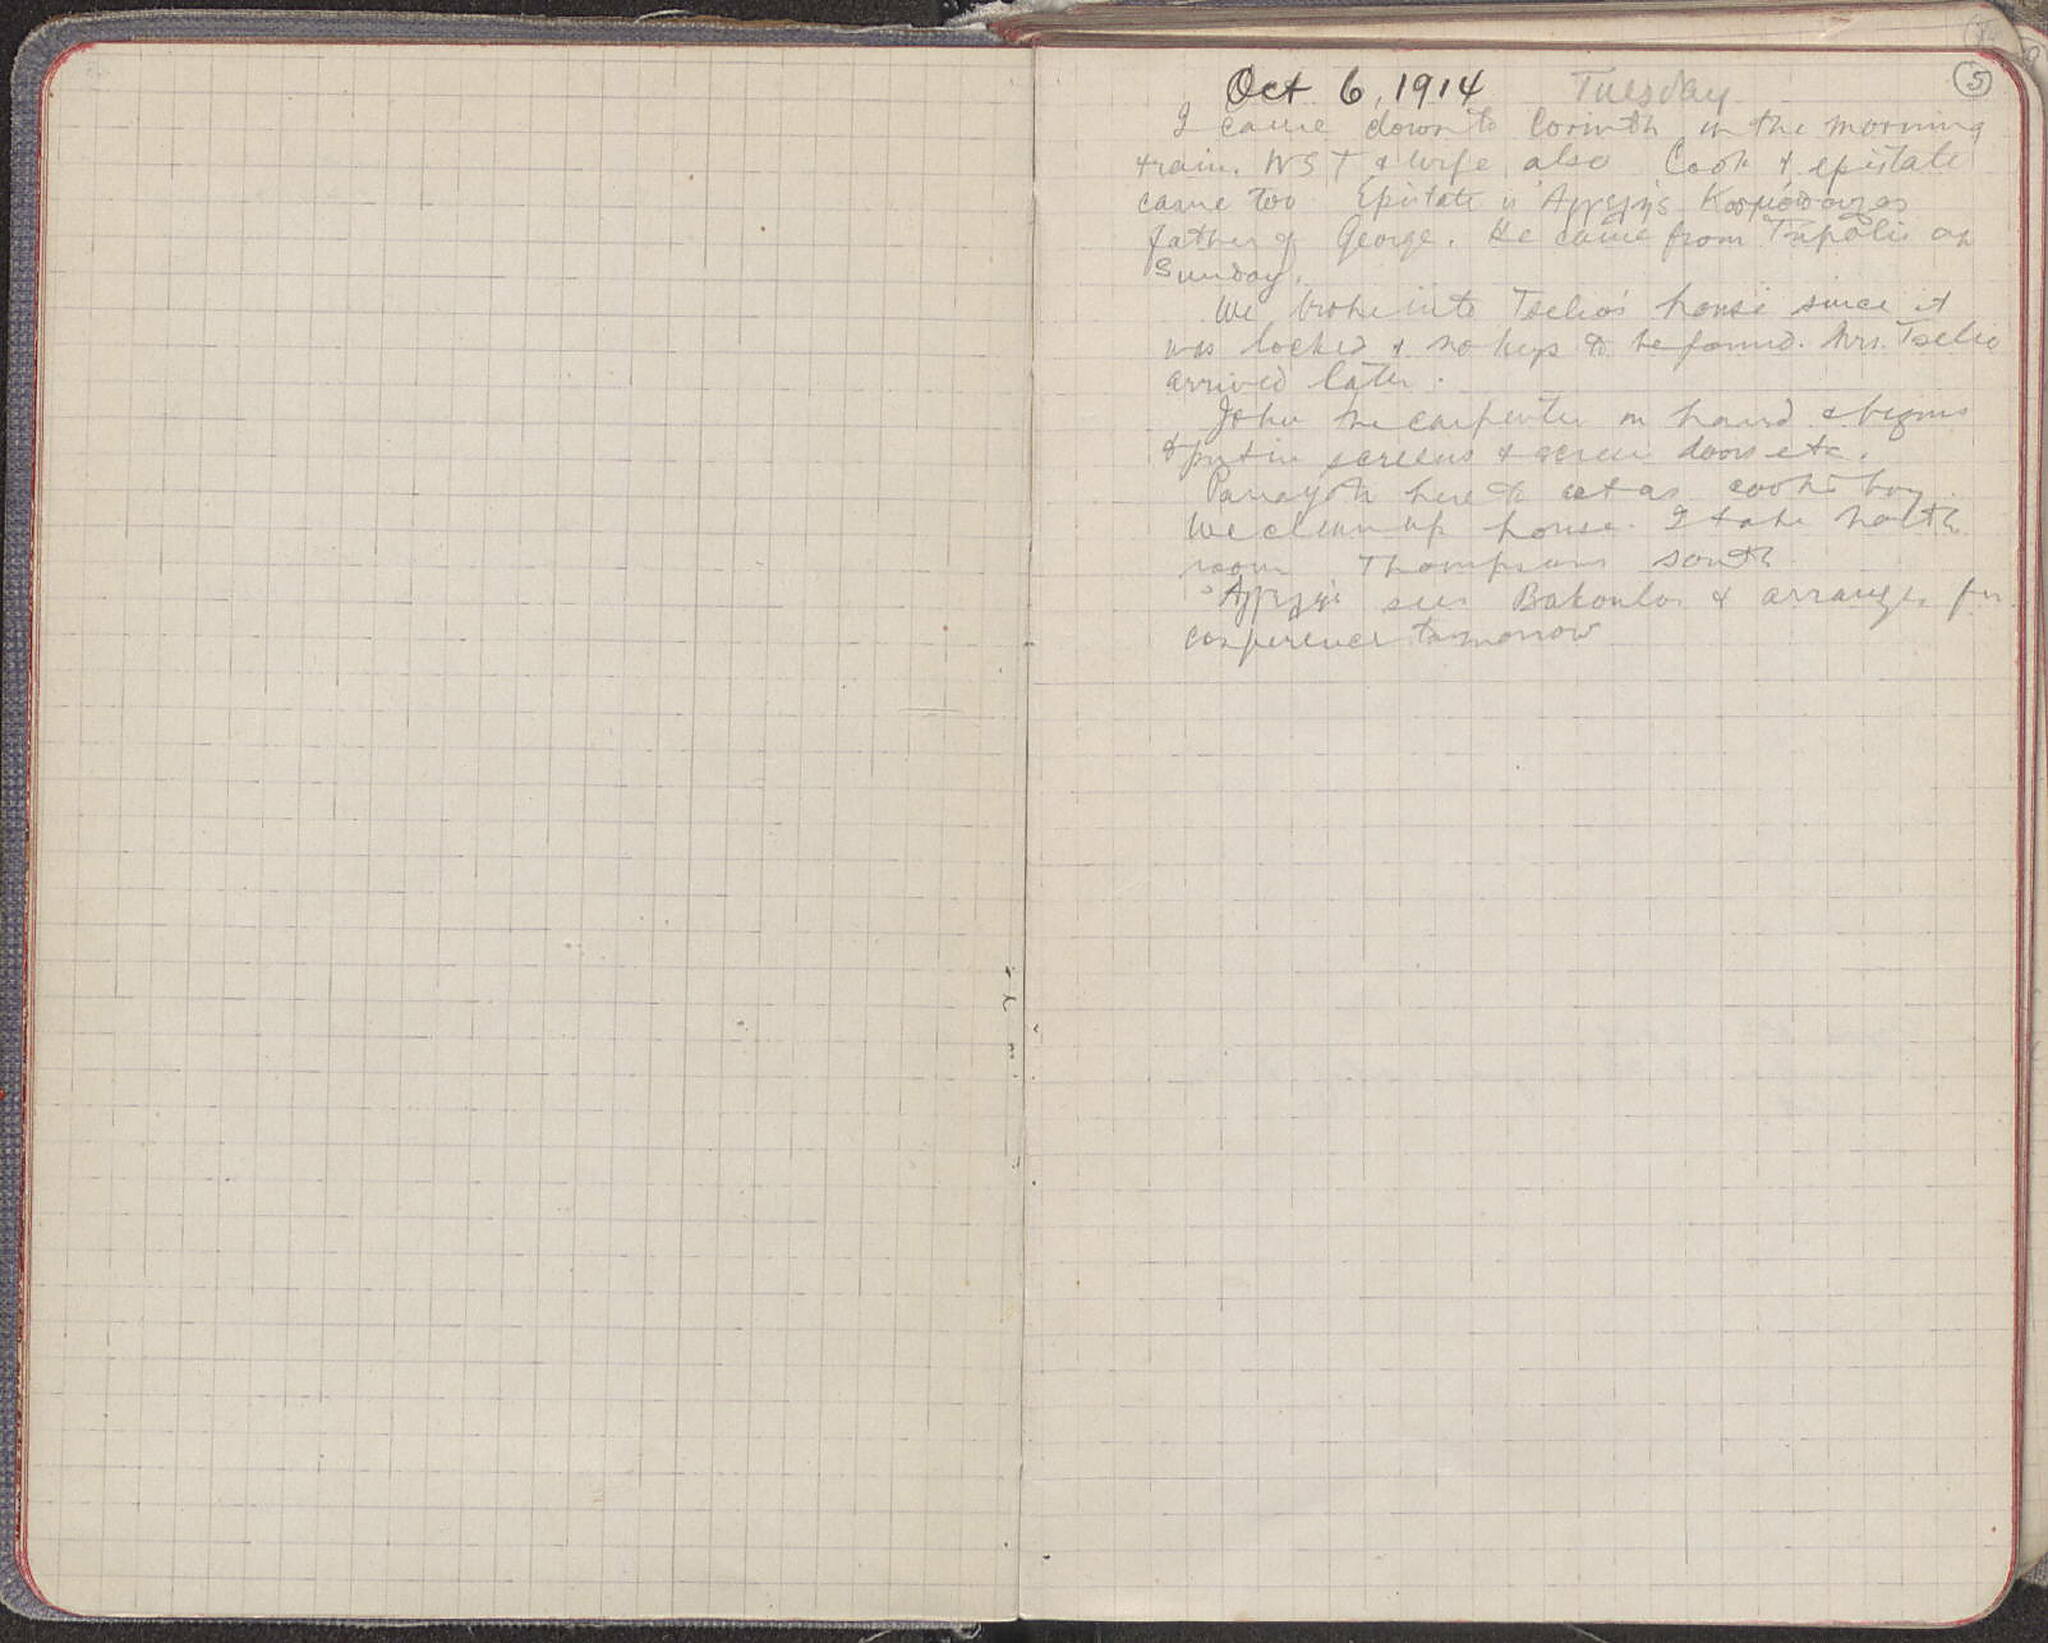 Oct 6, 1914 Tuesday 5
I came down to Corinth in the morning
train. WST & wife, also Cook & epistate
came too Epistate is Ἀγγελῆς
father of George. He came from Tripolis on
Sunday.
We broke into Tselios' house since it
was locked & no keys to be found. Mrs. Tselio
arrived later.
John the carpenter on hand & begins
to put in screens & screen doors etc.
Panayoti here to act as cook's boy
We clean up house. I take north
room Thompsons south
Ἀγγελῆς sees Bakoulos & arranges for
conference tomorrow